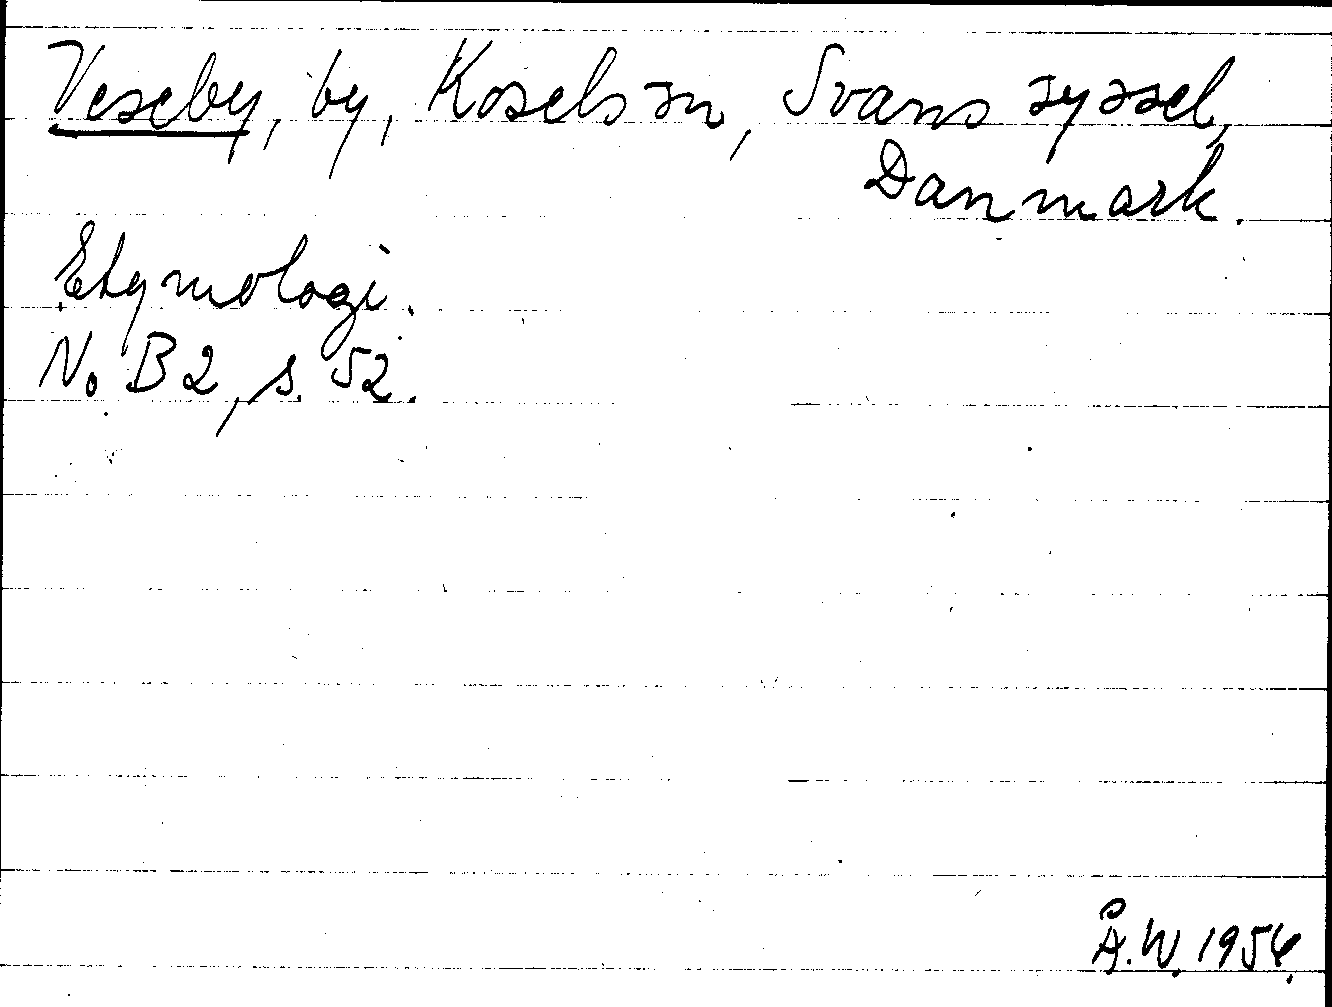 Veseby, by, Kosels sn, Svans syssel,
Danmark.
Etymologi.
No B 2, s. 52.
Å.W. 1954.